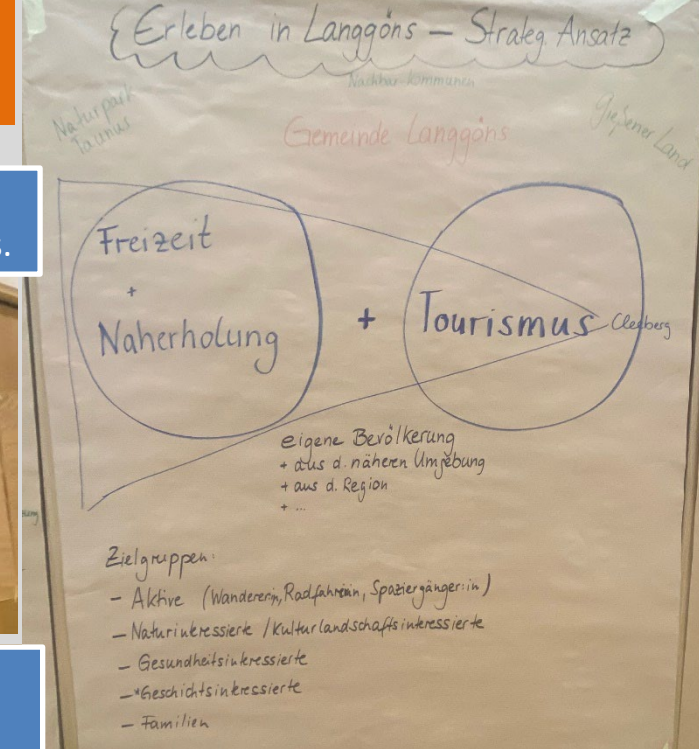 Erleben in Langgöns – Strateg. Ansatz
Nachbar-kommunen
Naturpark
Taunus
Gießener Land
Gemeinde Langgöns
Freizeit
+
Naherholung
+
Tourismus
Cleeberg
eigene Bevölkerung
+ aus d. näheren Umgebung
+ aus d. Region
+ ...
Zielgruppen:
– Aktive (Wanderer:in, Radfahrer:in, Spaziergänger:in)
– Naturinteressierte / Kulturlandschaftsinteressierte
– Gesundheitsinteressierte
– Geschichtsinteressierte
– Familien
s.